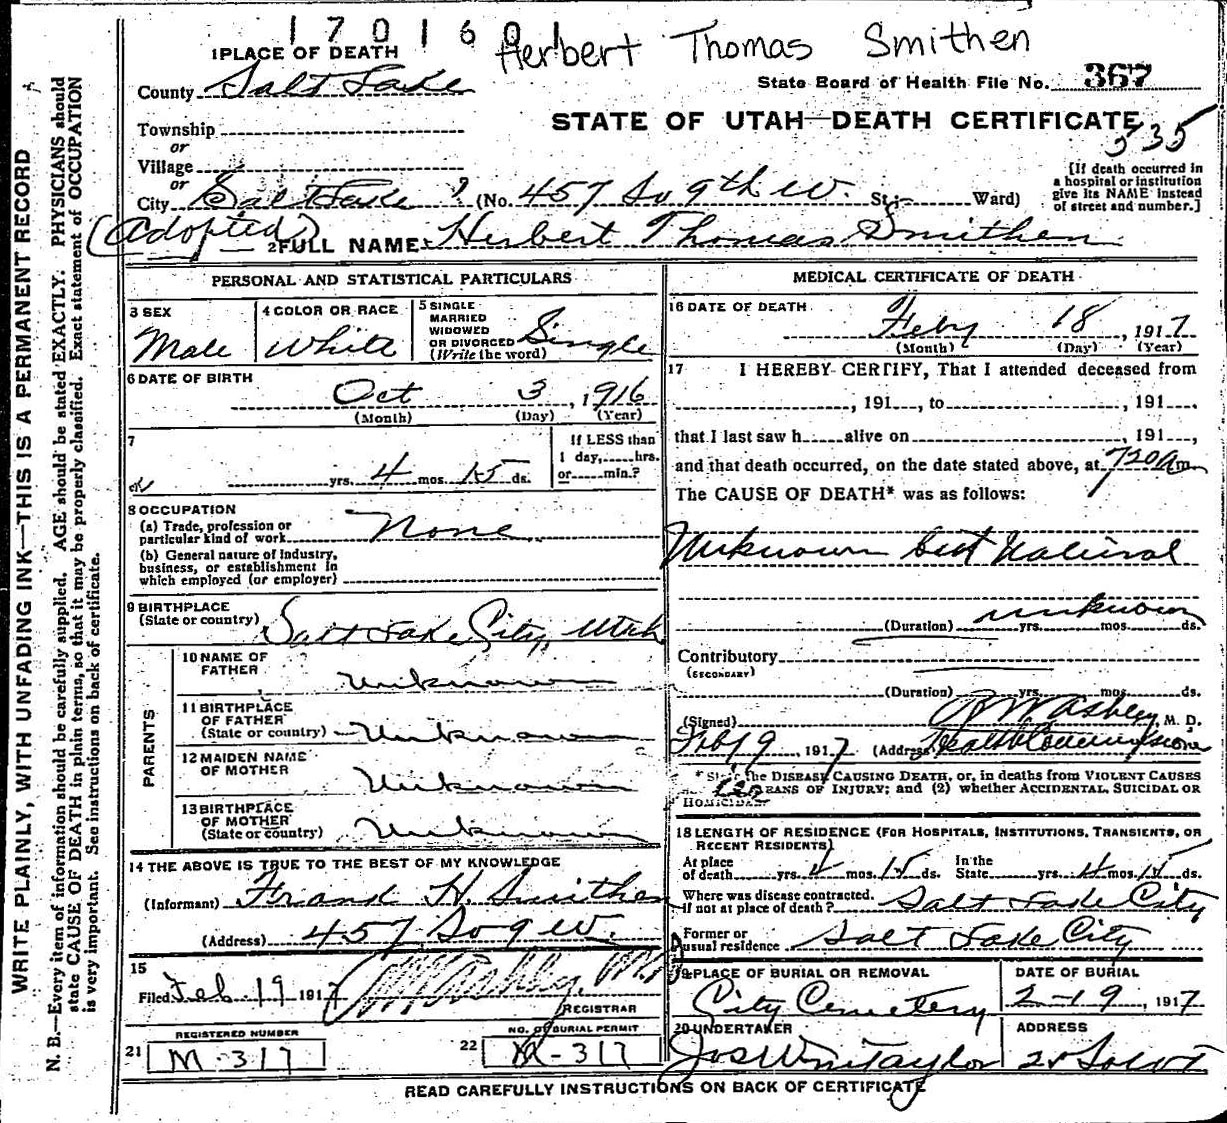 170160 Herbert Thomas Smithen
1 PLACE OF DEATH
State Board of Health File No. 367
County Salt Lake
STATE OF UTAH—DEATH CERTIFICATE
535
Township
or
Village
or
City Salt Lake (No. 457 So 9th W. St; Ward)
[If death occurred in
a hospital or institution
give its NAME instead
of street and number.]
(Adopted) 2 FULL NAME Herbert Thomas Smithen
PERSONAL AND STATISTICAL PARTICULARS
3 SEX
Male
4 COLOR OR RACE
White
5 SINGLE
MARRIED
WIDOWED
OR DIVORCED
(Write the word)
Single
6 DATE OF BIRTH
Oct 3, 1916
(Month) (Day) (Year)
7
yrs. 4 mos. 15 ds.
If LESS than
1 day, hrs.
or min.?
8 OCCUPATION
(a) Trade, profession or
particular kind of work None
(b) General nature of Industry,
business, or establishment in
which employed (or employer)
9 BIRTHPLACE
(State or country) Salt Lake City, Utah
PARENTS
10 NAME OF
FATHER Unknown
11 BIRTHPLACE
OF FATHER
(State or country) Unknown
12 MAIDEN NAME
OF MOTHER Unknown
13 BIRTHPLACE
OF MOTHER
(State or country) Unknown
14 THE ABOVE IS TRUE TO THE BEST OF MY KNOWLEDGE
(Informant) Frank H. Smithen
(Address) 457 So 9 W.
15
Filed Feb 19 1917
REGISTRAR
REGISTERED NUMBER
21 M-317
NO. OF BURIAL PERMIT
22 M-317
MEDICAL CERTIFICATE OF DEATH
16 DATE OF DEATH
Feby 18, 1917
(Month) (Day) (Year)
17 I HEREBY CERTIFY, That I attended deceased from
, 191 , to , 191 ,
that I last saw h alive on , 191 ,
and that death occurred, on the date stated above, at 7 20 A m
The CAUSE OF DEATH* was as follows:
Unknown but Natural
unknown
(Duration) yrs. mos. ds.
Contributory
(SECONDARY)
(Duration) yrs. mos. ds.
(Signed) Ashley, M. D.
Feb 19, 1917 (Address) Health Commissioner
* State the DISEASE CAUSING DEATH, or, in deaths from VIOLENT CAUSES
MEANS OF INJURY; and (2) whether ACCIDENTAL, SUICIDAL OR
HOMICIDAL
18 LENGTH OF RESIDENCE (FOR HOSPITALS, INSTITUTIONS, TRANSIENTS, OR
RECENT RESIDENTS)
At place
of death yrs. 4 mos. 15 ds.
In the
State yrs. 4 mos. 15 ds.
Where was disease contracted.
if not at place of death? Salt Lake City
Former or
usual residence Salt Lake City
19 PLACE OF BURIAL OR REMOVAL
City Cemetery
DATE OF BURIAL
2-19, 1917
20 UNDERTAKER
Jos Wm Taylor
ADDRESS
READ CAREFULLY INSTRUCTIONS ON BACK OF CERTIFICATE
WRITE PLAINLY, WITH UNFADING INK—THIS IS A PERMANENT RECORD
N. B.—Every item of information should be carefully supplied. AGE should be stated EXACTLY. PHYSICIANS should
state CAUSE OF DEATH in plain terms, so that it may be properly classified. Exact statement of OCCUPATION
is very important. See instructions on back of certificate.